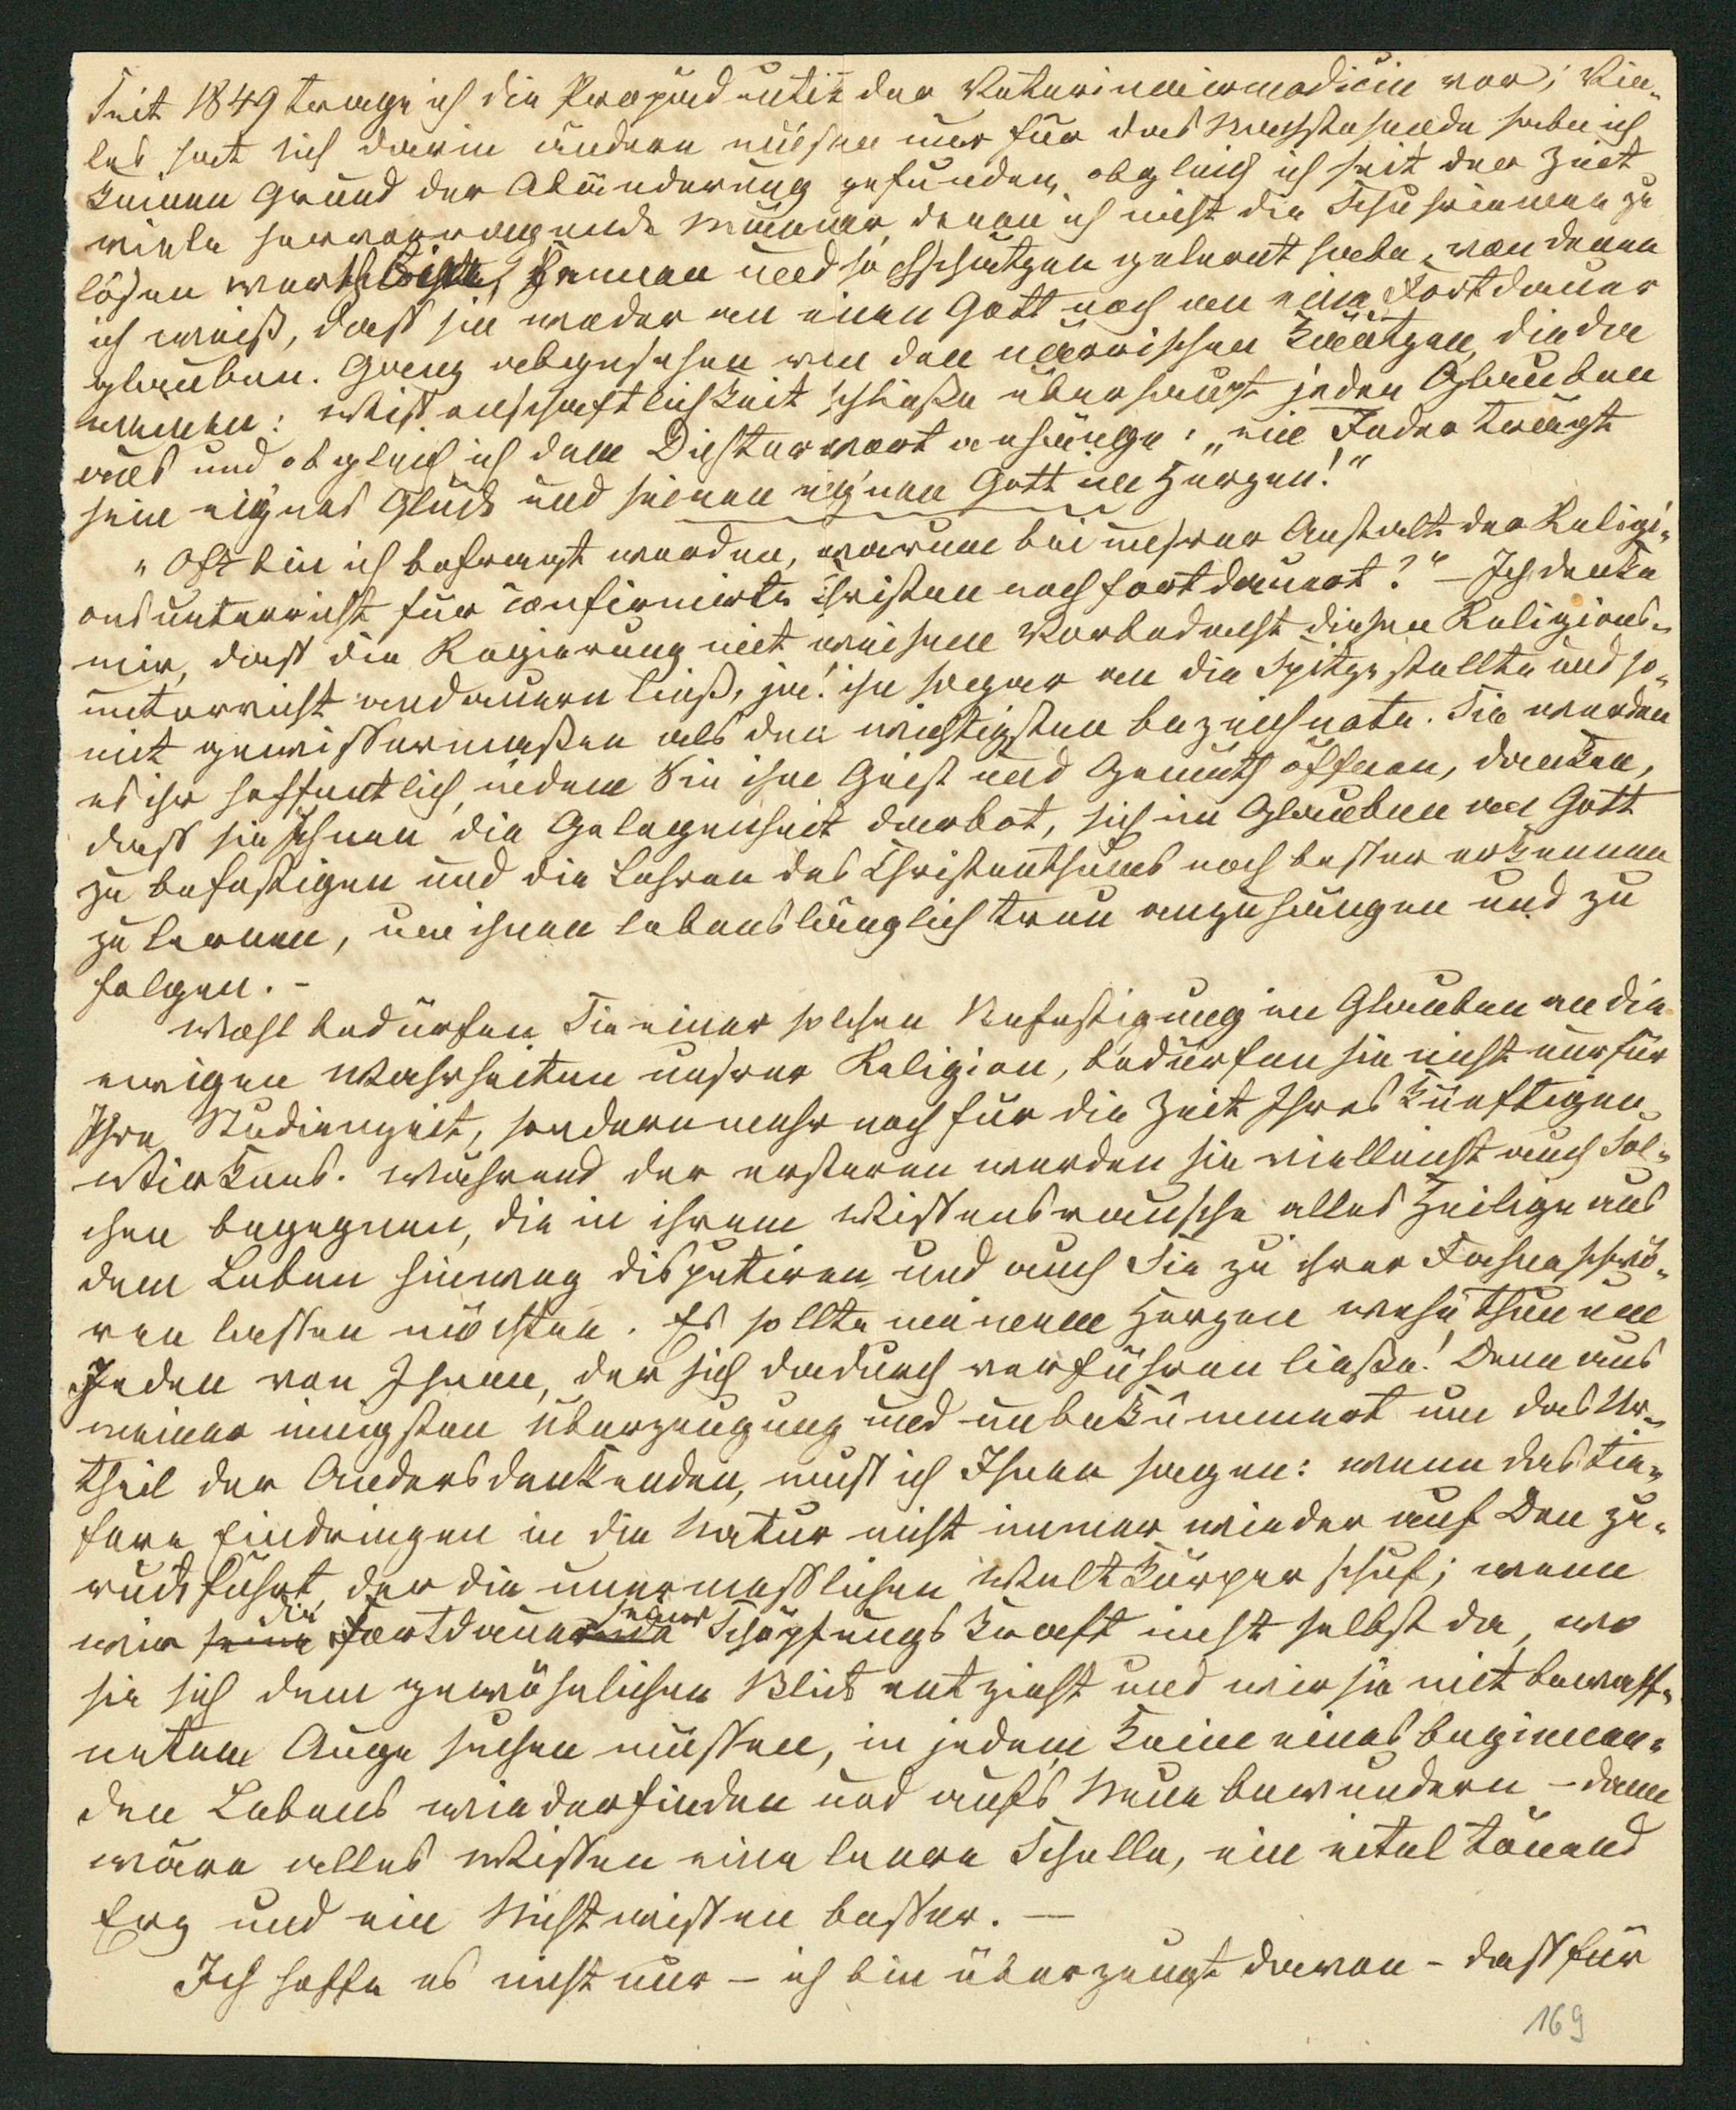 Seit 1849 trage ich die Propädeutik der Veterinairmedicin vor; Vie-
les hat sich darin ändern müssen nur für das Nachstehende habe ich
keinen Grund der Abänderung gefunden, obgleich ich seit der Zeit
viele hervorragende Männer, denen ich nicht die Schuhriemen zu
lösen werth kennen und hochschätzen gelernt habe, von denen
ich weiß, dass sie weder an einen Gott noch an eine Fortdauer
glauben. Ganz abgesehen von den närrischen Käuzen, die da
meinen: Wissenschaftlichkeit schließe überhaupt jeden Glauben
aus und obgleich ich dem Dichterwort anhänge: „ein Jeder trägt
sein eignes Glück und seinen eig'nen Gott im Herzen!"
„Oft bin ich befragt worden, warum bei unsrer Anstalt der Religi-
onsunterricht für confirmirte Christen noch fortdauert?" – Ich denke
mir, dass die Regierung mit weisem Vorbedacht diesen Religions-
unterricht andauern ließ, ja! ihn sogar an die Spitze stellte und so-
mit gewissermaßen als den wichtigsten bezeichnete. Sie werden
es ihr hoffentlich, indem Sie ihm Geist und Gemüth öffnen, danken,
dass sie Ihnen die Gelegenheit darbot, sich im Glauben an Gott
zu befestigen und die Lehren des Christenthums noch besser erkennen
zu lernen, um ihnen lebenslänglich treu anzuhängen und zu
folgen. –
Wohl bedürfen Sie einer solchen Befestigung im Glauben an die
ewigen Wahrheiten unsrer Religion, bedürfen sie nicht nur für
Ihre Studienzeit, sondern mehr noch für die Zeit Ihres künftigen
Wirkens. Während der ersteren werden sie vielleicht auch Sol-
chen begegnen, die in ihrem Wissensrausche alles Heilige aus
dem Leben hinweg disputiren und auch Sie zu ihrer Fahne schwö-
ren lassen möchten. Es sollte meinem Herzen wehe thun um
Jeden von Ihnen, der sich dadurch verführen ließe! Denn aus
meiner innigsten Überzeugung und unbekümmert um das Ur-
theil der Andersdenkenden, muss ich Ihnen sagen: wenn das tie-
fere Eindringen in die Natur nicht immer wieder auf Den zu-
rückführt, der die unermesslichen Weltkörper schuf; wenn
wir seine die Fortdauernde seiner Schöpfungskraft nicht selbst da, wo
sie sich dem gewöhnlichen Blick entzieht und wir sie mit bewaff-
netem Auge suchen müssen, in jedem Keime eines beginnen-
den Lebens wiederfinden und aufs Neue bewundern – dann
wäre alles Wissen eine leere Schelle, ein eitel tönend
Erz und ein Nichtwissen besser. —
Ich hoffe es nicht nur – ich bin überzeugt davon – dass für
169